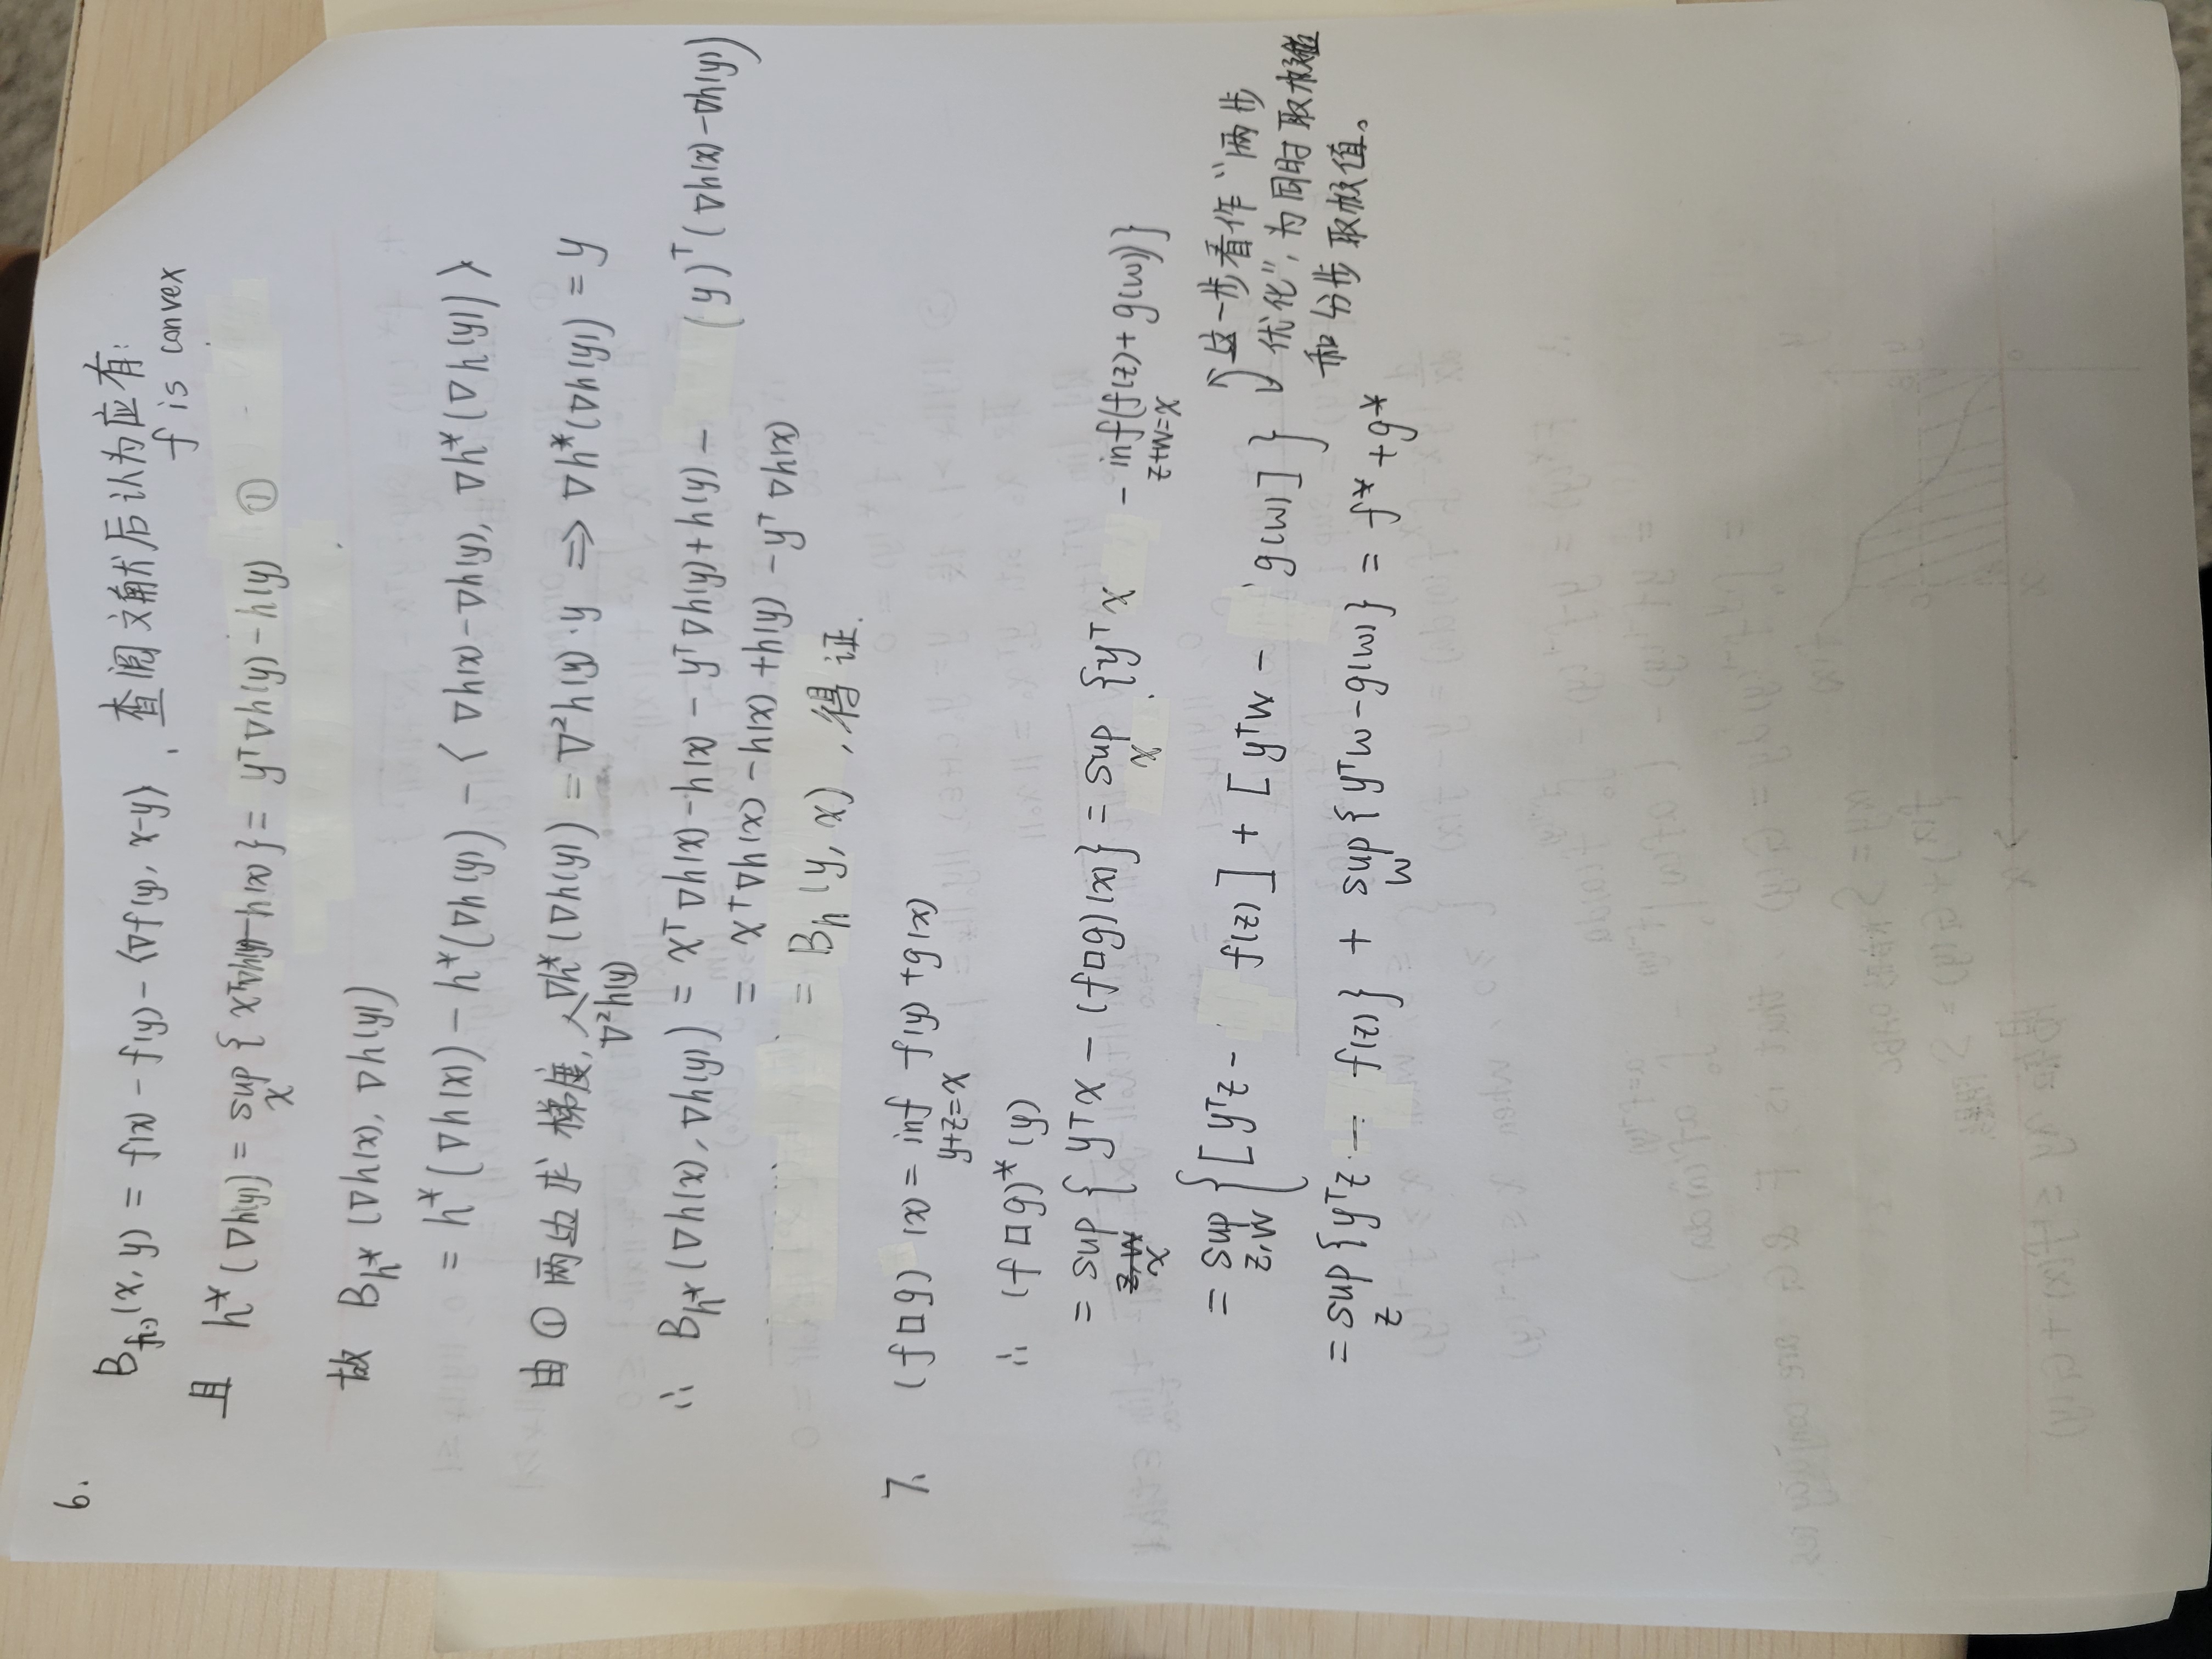 6.
B_{f(·)}(x, y) = f(x) - f(y) - ⟨∇f(y), x-y⟩, 查阅文献后认为应有:
f is convex
且 h*(∇h(y)) = sup_x { xᵀ∇h(y) - h(x) } = yᵀ∇h(y) - h(y) ①
故 B_{h*}(∇h(x), ∇h(y))
= h*(∇h(x)) - h*(∇h(y)) - ⟨∇h(x) - ∇h(y), ∇h*(∇h(y))⟩
由①两边求梯度, ∇²h(y) ∇h*(∇h(y)) = ∇²h(y)·y ⇒ ∇h*(∇h(y)) = y
∴ B_{h*}(∇h(x), ∇h(y)) = xᵀ∇h(x) - h(x) - yᵀ∇h(y) + h(y) - (y)ᵀ(∇h(x) - ∇h(y))
= xᵀ∇h(x) - h(x) + h(y) - yᵀ∇h(x)
= B_h(y, x), 得证.
7. (f□g)(x) = inf_{y+z=x} f(y) + g(x)
∴ (f□g)*(y)
= sup_x { yᵀx - (f□g)(x) } = sup_x { yᵀx - inf_{z+w=x} (f(z) + g(w)) }
= sup_{z,w} { [yᵀz - f(z)] + [yᵀw - g(w)] }
这一步看作“两步
优化”, 为同时取极值
和分步取极值。
= sup_z {yᵀz - f(z)} + sup_w {yᵀw - g(w)} = f* + g*